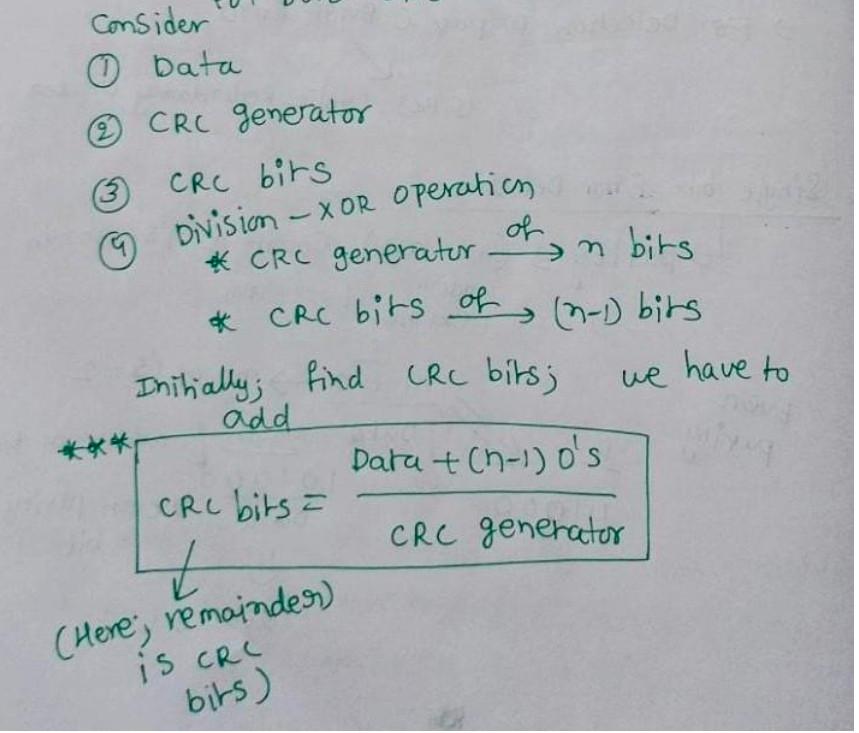 Consider
① Data
② CRC generator
③ CRC bits
④ Division - XOR operation
* CRC generator of → n bits
* CRC bits of → (n-1) bits
Initially; find CRC bits; we have to
add
*** CRC bits = Data + (n-1) 0's
CRC generator
(Here; remainder)
is CRC
bits)